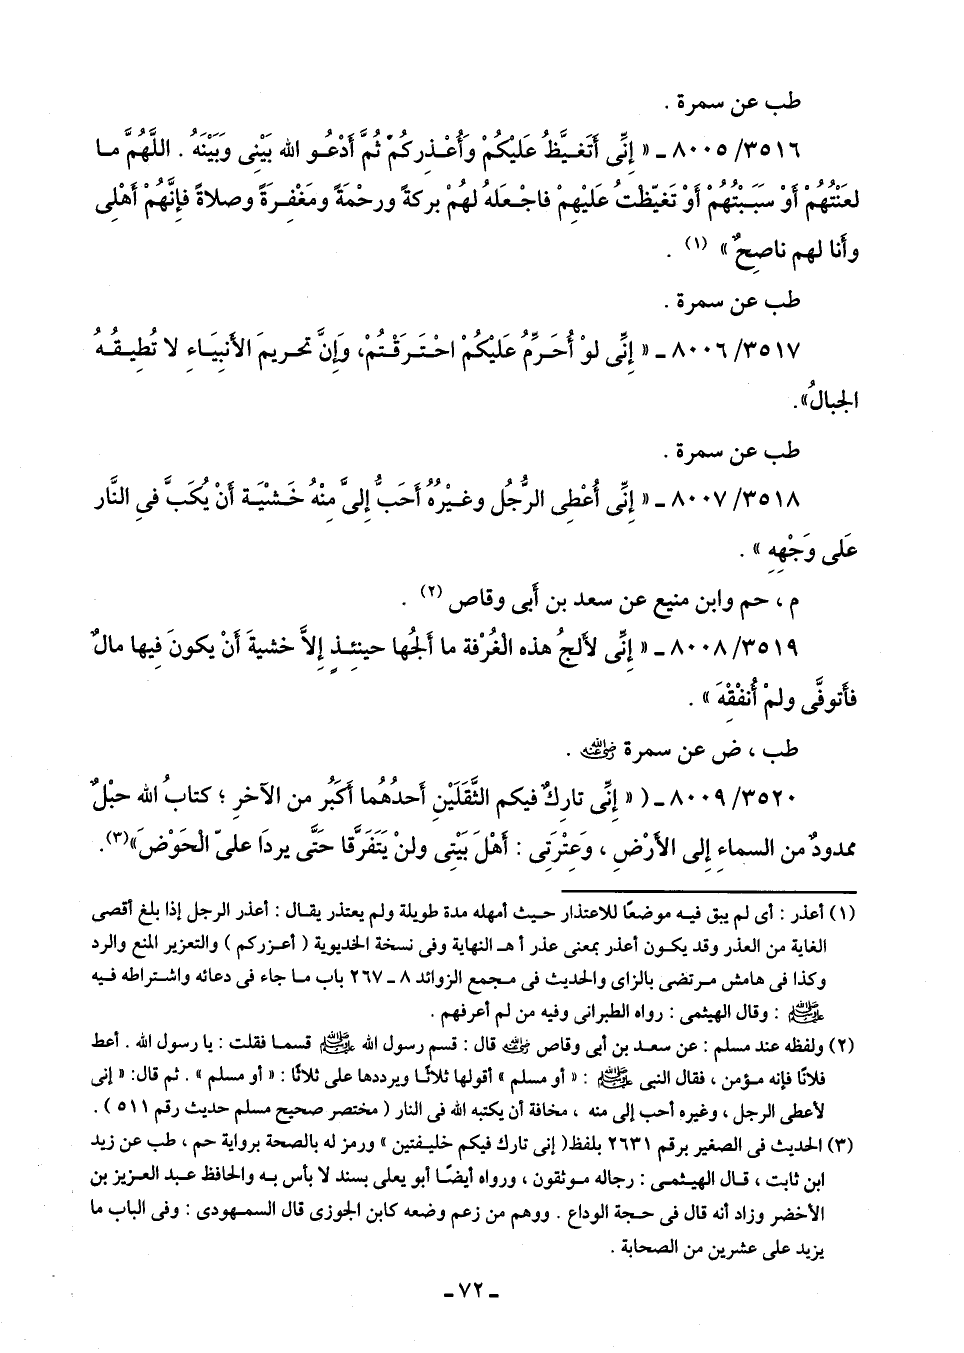 طب عن سمرة .
٨٠٠٥/٣٥١٦ ـ « إِنِّى أَتَغيَّظُ عَليْكُمْ وَأُعْـذِركُمْ ثُمَّ أَدْعُـو الله بَيْنِى وَبَيْنَهُ . اللَّهُمَّ مـا
لعَنْتُهُمْ أَوْ سَبَبْتُهُمْ أَوْ تَغيّظْتُ عَليْهِمْ فاجْعلهُ لهُمْ بركةً ورحْمةً ومَغْفِرَةً وصلاةً فإِنَّهُمْ أَهْلِى
وأَنا لهم ناصِحٌ » (١) .
طب عن سمرة .
٨٠٠٦/٣٥١٧ ـ « إِنِّى لوْ أُحَرِّمُ عَليْكُمْ احْتَرَقْتُمْ، وَإِنَّ تحريمَ الأَنبِيَاءِ لا تُطيقُهُ
الجبالُ».
طب عن سمرة .
٨٠٠٧/٣٥١٨ ـ « إِنِّى أُعْطِى الرَّجُل وغيْرُهُ أَحَبُّ إِلىَّ مِنْهُ خَشْيَة أَنْ يُكَبَّ فىِ النَّار
عَلى وَجْهِهِ » .
م ، حم وابن منيع عن سعد بن أَبى وقاص (٢) .
٨٠٠٨/٣٥١٩ ـ « إِنِّى لأَلجُ هذه الْغُرْفة ما أَلجُها حينئِـذٍ إِلاَّ خشيةَ أَنْ يكونَ فِيها مالٌ
فأَتوفَّى ولمْ أُنفْقِهَ » .
طب ، ض عن سمرة رضي الله عنه .
٨٠٠٩/٣٥٢٠ ـ ( « إِنِّى تاركٌ فيكم الثَّقَلَيْنِ أَحدُهُما أَكبَرُ من الآخرِ ؛ كتابُ الله حبْلٌ
ممدودٌ من السماءِ إِلى الأَرْضِ ، وَعِتْرَتِى : أَهْلَ بَيْتِى ولنْ يَتَفَرَّقا حَتَّى يردَا علىّ الْحَوْضَ»(٣).
(١) أعذر : أى لم يبق فيه موضعًا للاعتذار حيث أمهله مدة طويلة ولم يعتذر يقال : أعذر الرجل إذا بلغ أقصى
الغاية من العذر وقد يكون أعذر بمعنى عذر أ هـ النهاية وفى نسخة الخديوية ( أعزركم ) والتعزير المنع والرد
وكذا فى هامش مرتضى بالزاى والحديث فى مجمع الزوائد ٨ ـ ٢٦٧ باب ما جاء فى دعائه واشتراطه فيه
ﷺ : وقال الهيثمى : رواه الطبرانى وفيه من لم أعرفهم .
(٢) ولفظه عند مسلم : عن سعد بن أبى وقاص رضي الله عنه قال : قسم رسول الله ﷺ قسما فقلت : يا رسول الله . أعط
فلانًا فإنه مؤمن ، فقال النبى ﷺ : « أو مسلم » أقولها ثلاثًا ويرددها على ثلاثًا : « أو مسلم » . ثم قال: « إنى
لأعطى الرجل ، وغيره أحب إلى منه ، مخافة أن يكتبه الله فى النار ( مختصر صحيح مسلم حديث رقم ٥١١ ) .
(٣) الحديث فى الصغير برقم ٢٦٣١ بلفظ( إنى تارك فيكم خليفتين » ورمز له بالصحة برواية حم ، طب عن زيد
ابن ثابت ، قال الهيثمى : رجاله موثقون ، ورواه أيضًا أبو يعلى بسند لا بأس به والحافظ عبد العزيز بن
الأخضر وزاد أنه قال فى حجة الوداع . ووهم من زعم وضعه كابن الجوزى قال السمهودى : وفى الباب ما
يزيد على عشرين من الصحابة .
ـ ٧٢ ـ